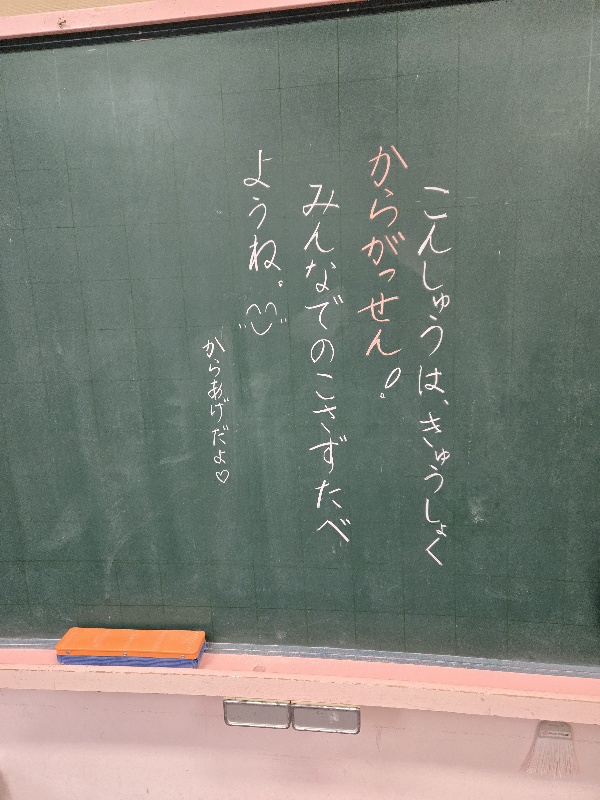 こんしゅうは、きゅうしょく
からがっせん!。
みんなでのこさずたべ
ようね。
からあげだよ♡